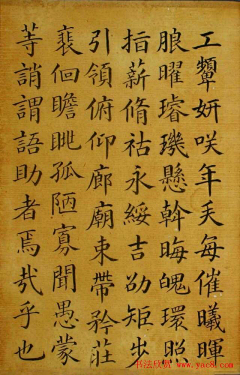 工顰妍咲年矢每催曦暉
朗曜璿璣懸斡晦魄環照
指薪脩祜永綏吉劭矩步
引領俯仰廊廟束帶矜莊
裵佪瞻眺孤陋寡聞愚蒙
等誚謂語助者焉哉乎也
书法欣赏 www.yac8.com